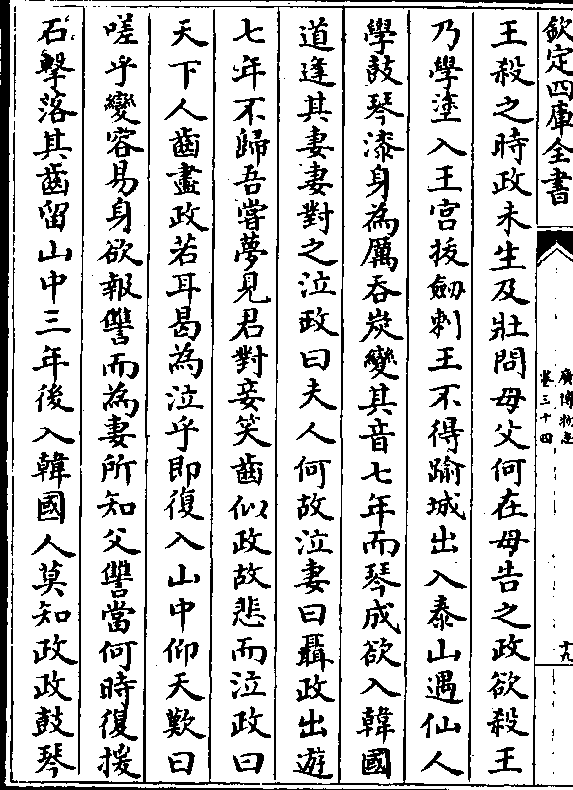 欽定四庫全書
廣博物志
卷三十四
十九
王殺之時政未生及壯問母父何在母告之政欲殺王
乃學塗入王宮拔劒刺王不得踰城出入泰山遇仙人
學鼓琴漆身為厲吞炭變其音七年而琴成欲入韓國
道逢其妻妻對之泣政曰夫人何故泣妻曰聶政出遊
七年不歸吾嘗夢見君對妾笑齒似政故悲而泣政曰
天下人齒盡政若耳曷為泣乎即復入山中仰天歎曰
嗟乎變容易身欲報讐而為妻所知父讐當何時復援
石擊落其齒留山中三年後入韓國人莫知政政鼓琴